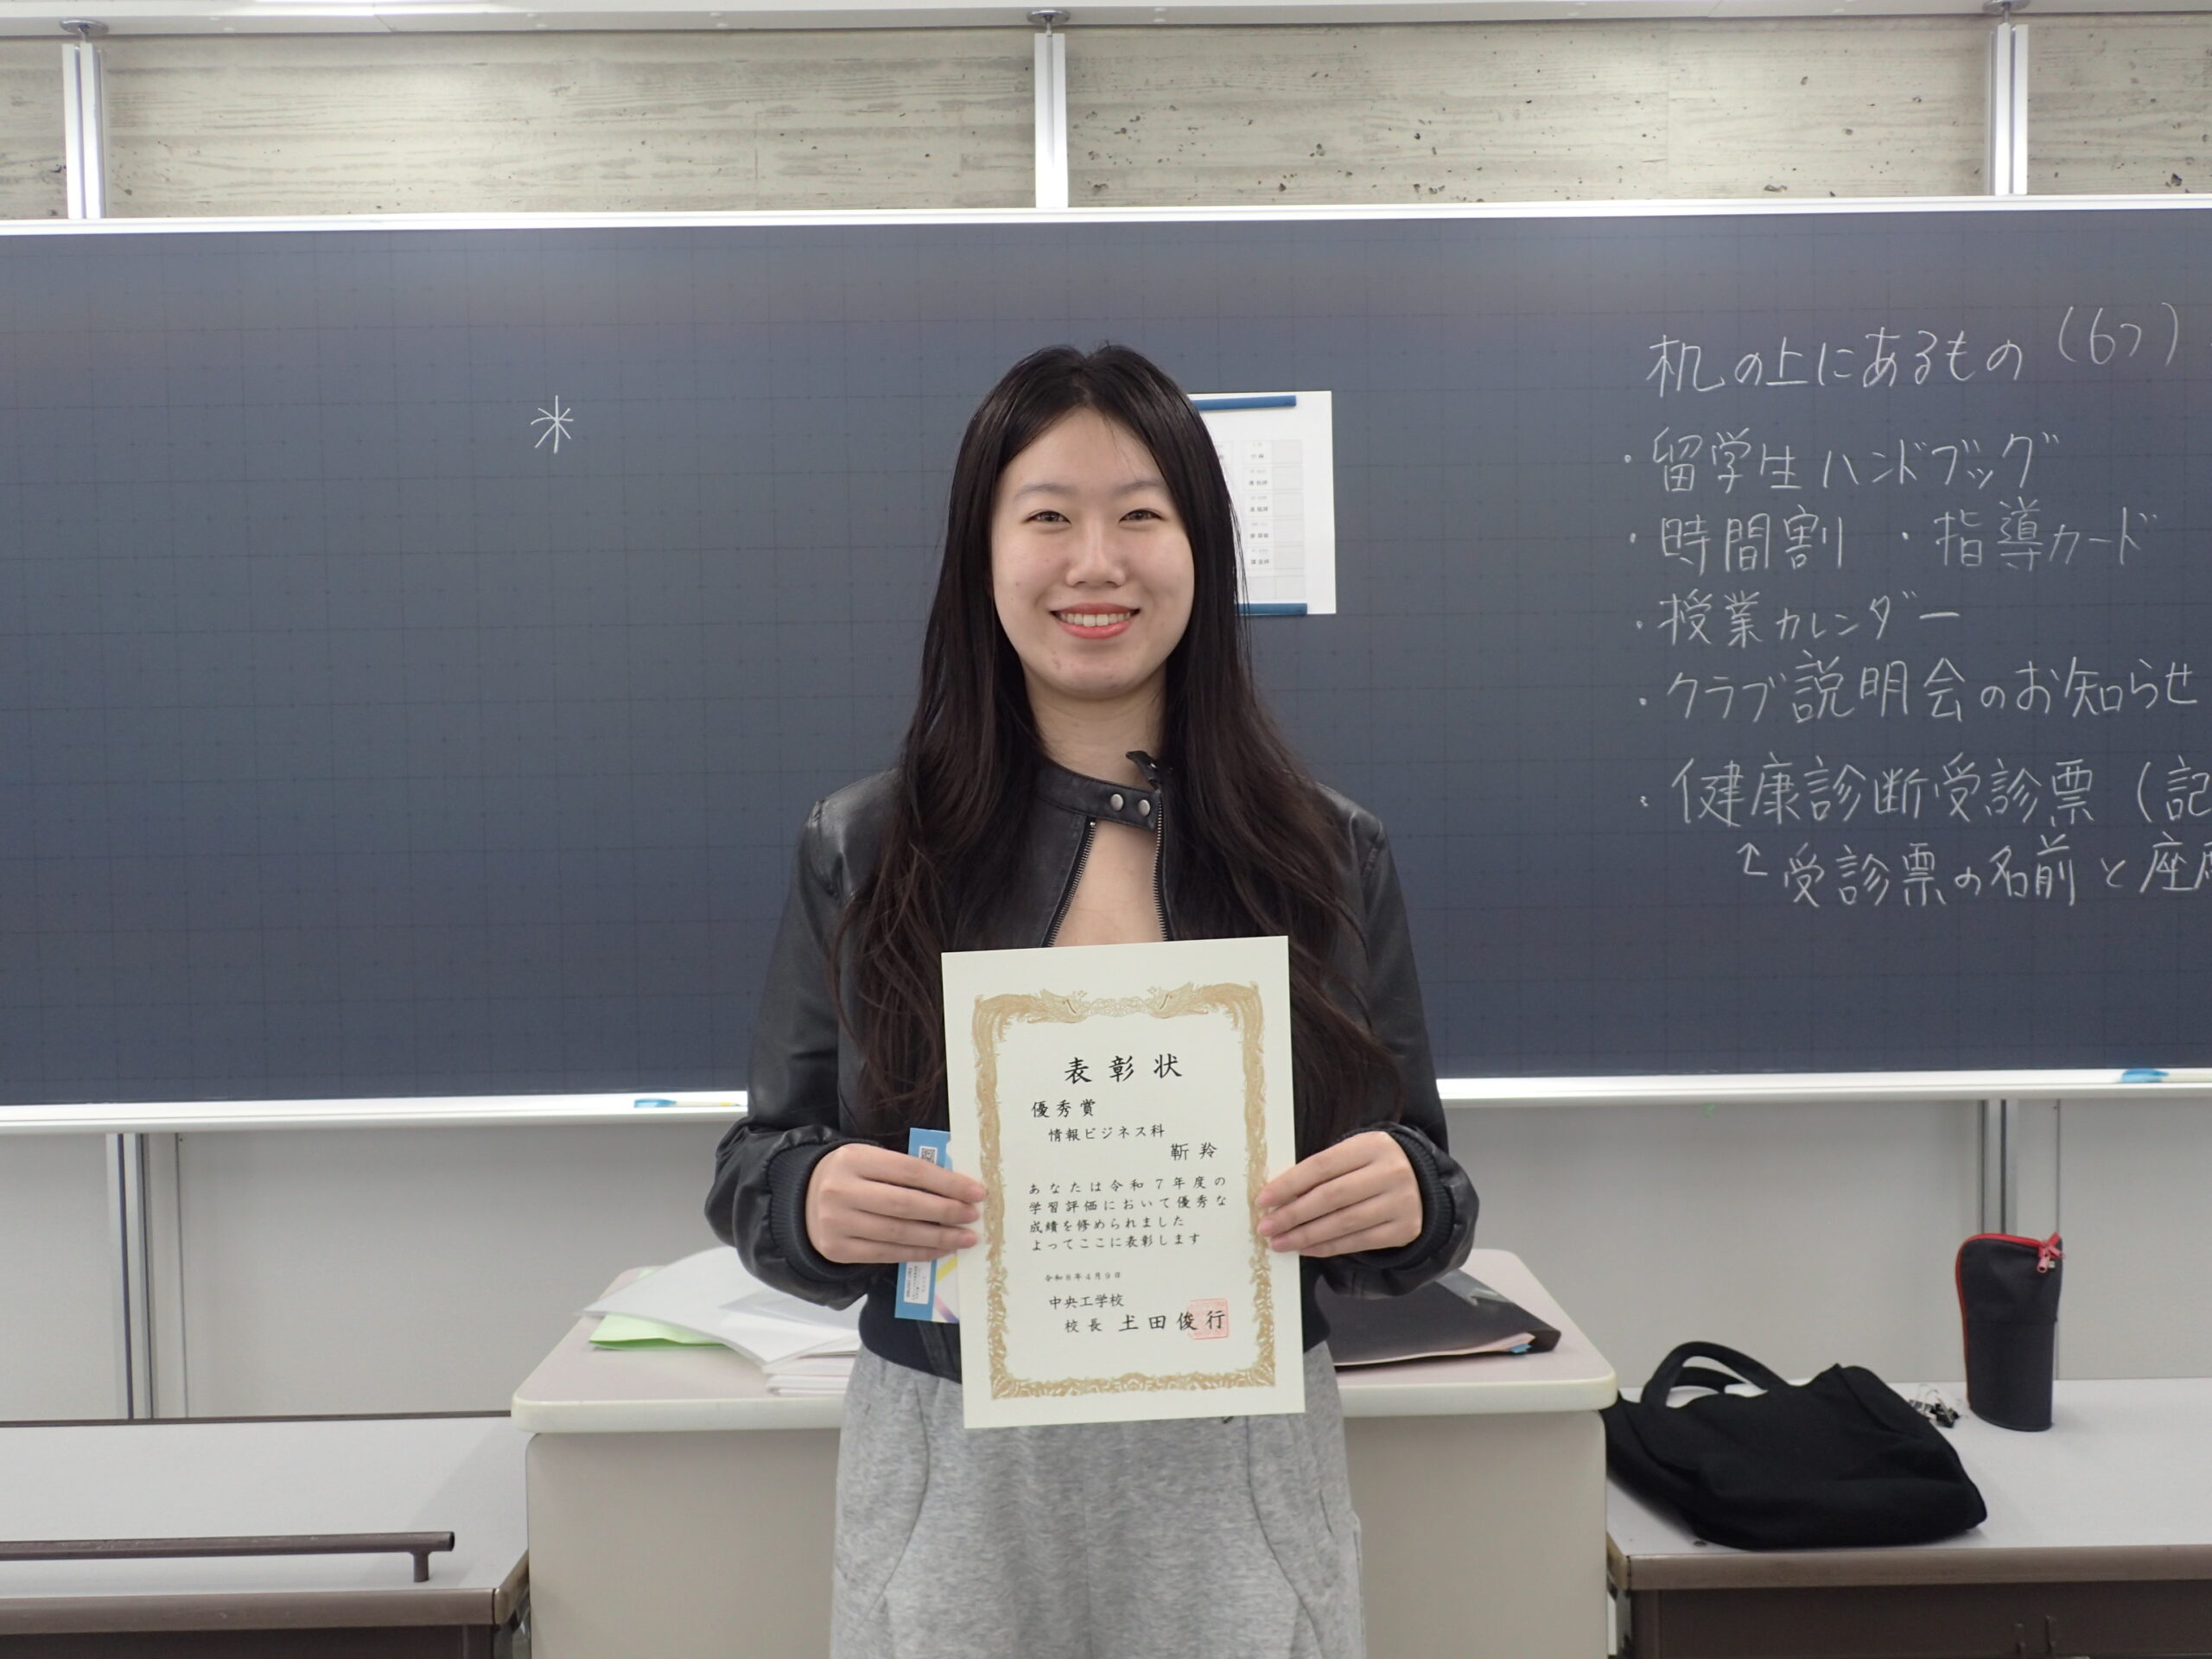 机の上にあるもの（6つ）
・留学生ハンドブッグ
・時間割 ・指導カード
・授業カレンダー
・クラブ説明会のお知らせ
・健康診断受診票（記
↑受診票の名前と座
表彰状
優秀賞
情報ビジネス科
靳羚
あなたは令和7年度の
学習評価において優秀な
成績を修められました
よってここに表彰します
令和8年4月9日
中央工学校
校長 土田俊行